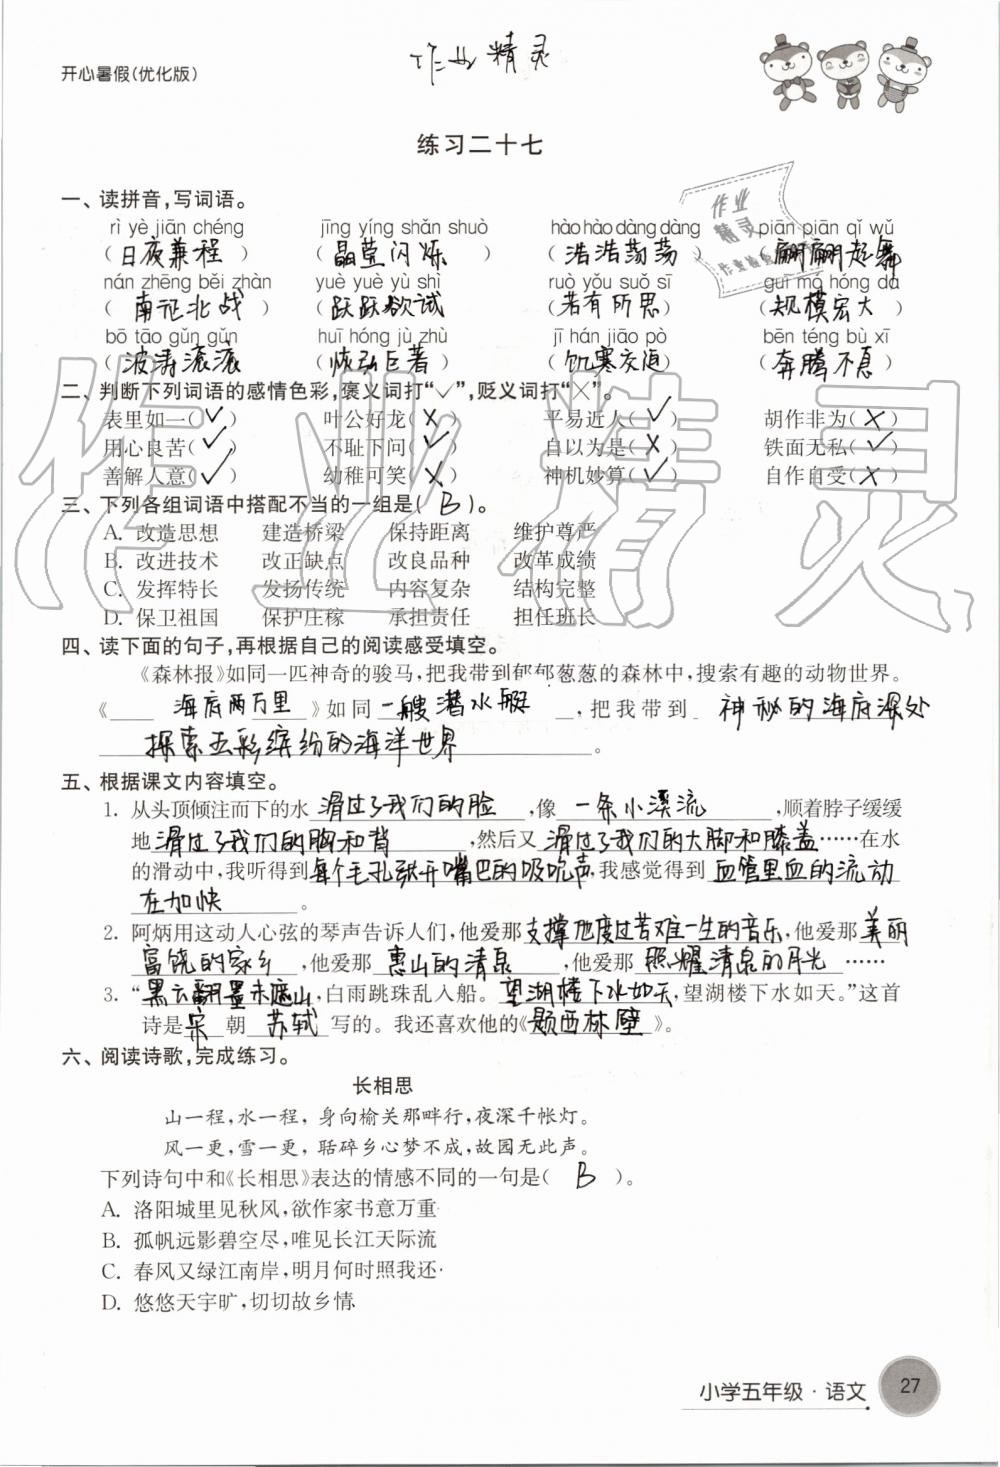 开心暑假(优化版)
作业精灵
练习二十七
作业
精灵
一、读拼音,写词语。
rì yè jiān chéng jīng yíng shǎn shuò hào hào dàng dàng piān piān qǐ wǔ
(日夜兼程) (晶莹闪烁) (浩浩荡荡) (翩翩起舞
nán zhēng běi zhàn yuè yuè yù shì ruò yǒu suǒ sī guī mó hóng dà
(南征北战) (跃跃欲试) (若有所思) (规模宏大)
bō tāo gǔn gǔn huī hóng jù zhù jī hán jiāo pò bēn téng bù xī
(波涛滚滚) (恢弘巨著) (饥寒交迫) (奔腾不息)
二、判断下列词语的感情色彩,褒义词打“✓”,贬义词打“×”。
表里如一(✓) 叶公好龙(×) 平易近人(✓) 胡作非为(×)
用心良苦(✓) 不耻下问(✓) 自以为是(×) 铁面无私(✓)
善解人意(✓) 幼稚可笑(×) 神机妙算(✓) 自作自受(×)
三、下列各组词语中搭配不当的一组是(B)。
A. 改造思想 建造桥梁 保持距离 维护尊严
B. 改进技术 改正缺点 改良品种 改革成绩
C. 发挥特长 发扬传统 内容复杂 结构完整
D. 保卫祖国 保护庄稼 承担责任 担任班长
四、读下面的句子,再根据自己的阅读感受填空。
《森林报》如同一匹神奇的骏马,把我带到郁郁葱葱的森林中,搜索有趣的动物世界。
《海底两万里》如同一艘潜水艇,把我带到神秘的海底深处
探索五彩缤纷的海洋世界。
五、根据课文内容填空。
1. 从头顶倾注而下的水滑过了我们的脸,像一条小溪流,顺着脖子缓缓
地滑过了我们的胸和背,然后又滑过了我们的大脚和膝盖……在水
的滑动中,我听得到每个毛孔张开嘴巴的吸吮声,我感觉得到血管里血的流动
在加快。
2. 阿炳用这动人心弦的琴声告诉人们,他爱那支撑他度过苦难一生的音乐,他爱那美丽
富饶的家乡,他爱那惠山的清泉,他爱那照耀清泉的月光……
3. “黑云翻墨未遮山,白雨跳珠乱入船。望湖楼下水如天,望湖楼下水如天。”这首
诗是宋朝苏轼写的。我还喜欢他的《题西林壁》。
六、阅读诗歌,完成练习。
长相思
山一程,水一程,身向榆关那畔行,夜深千帐灯。
风一更,雪一更,聒碎乡心梦不成,故园无此声。
下列诗句中和《长相思》表达的情感不同的一句是(B)。
A. 洛阳城里见秋风,欲作家书意万重
B. 孤帆远影碧空尽,唯见长江天际流
C. 春风又绿江南岸,明月何时照我还
D. 悠悠天宇旷,切切故乡情
作业精灵
小学五年级·语文 27